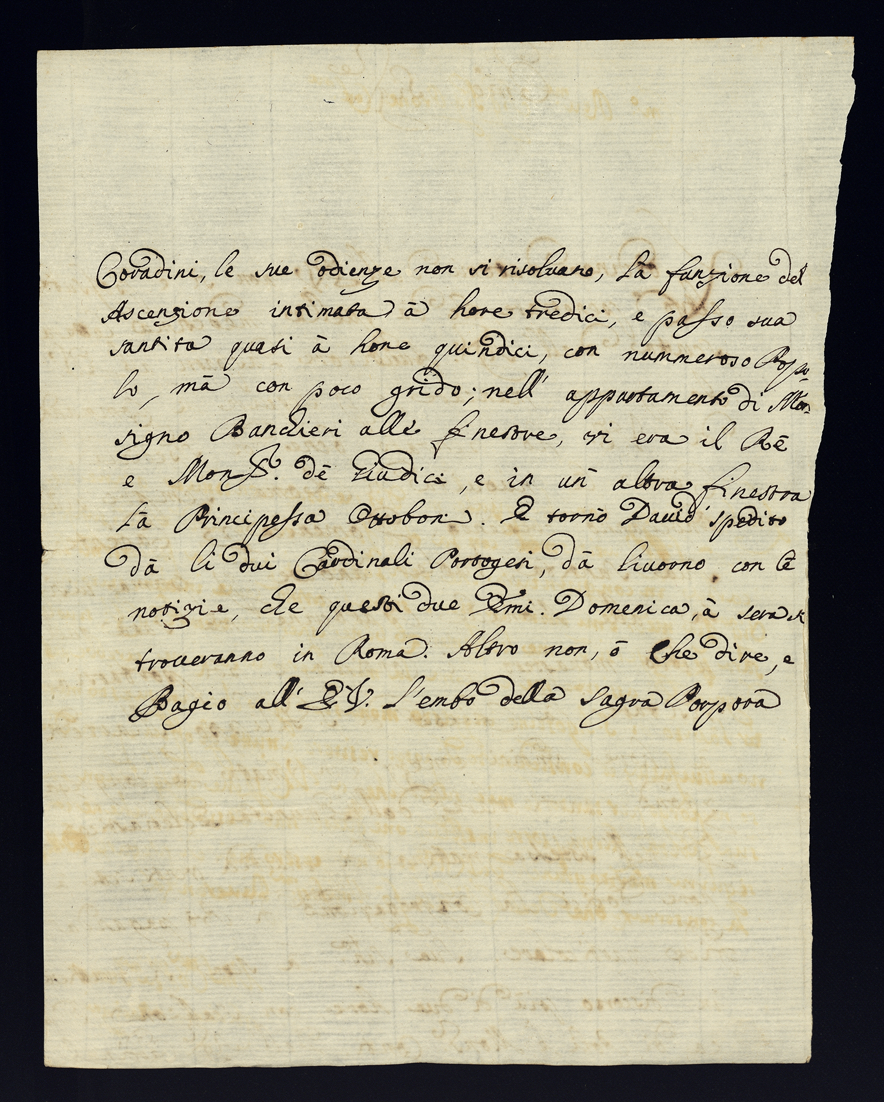 Coradini, le sue odienze non si risolvano, Là funzione del
Ascenzione intimata à hore tredici, e passo sua
santita quasi à hore quindici, con nummeroso Popo
lo, mà con poco grido; nell' appartamento di Mon
signo Banchieri alle finestre, vi era il Rè
e Mons.r dè Giudici, e in un' altra finestra
Là Principessa Ottoboni. E tornò David spedito
dà li dui Cardinali Portogesi, dà Livorno con le
notizie, che questi due Emi. Domenica, à sera si
troveranno in Roma. Altro non, ò che dire, e
Bagio all' E.V. L'embo della Sagra Porpora